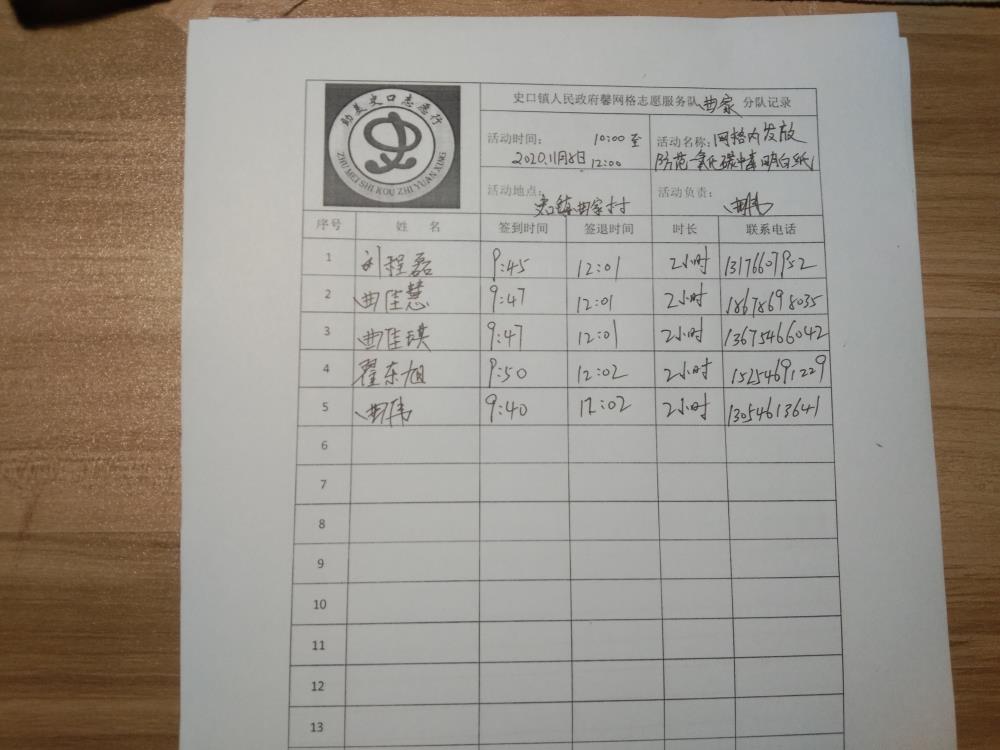 助美史口志愿行
ZHU MEI SHI KOU ZHI YUAN XING
史口镇人民政府馨网格志愿服务队曲家分队记录
活动时间： 10:00至
2020.11月8日 12:00
活动名称：网格内发放
防范一氧化碳中毒明白纸
活动地点：史口镇曲家村
活动负责：曲伟
序号 姓名 签到时间 签退时间 时长 联系电话
1 刘程磊 9:45 12:01 2小时 13176607952
2 曲佳慧 9:47 12:01 2小时 18678698035
3 曲佳琪 9:47 12:01 2小时 13675466042
4 翟东旭 9:50 12:02 2小时 15254691229
5 曲伟 9:40 12:02 2小时 13054613641
6
7
8
9
10
11
12
13